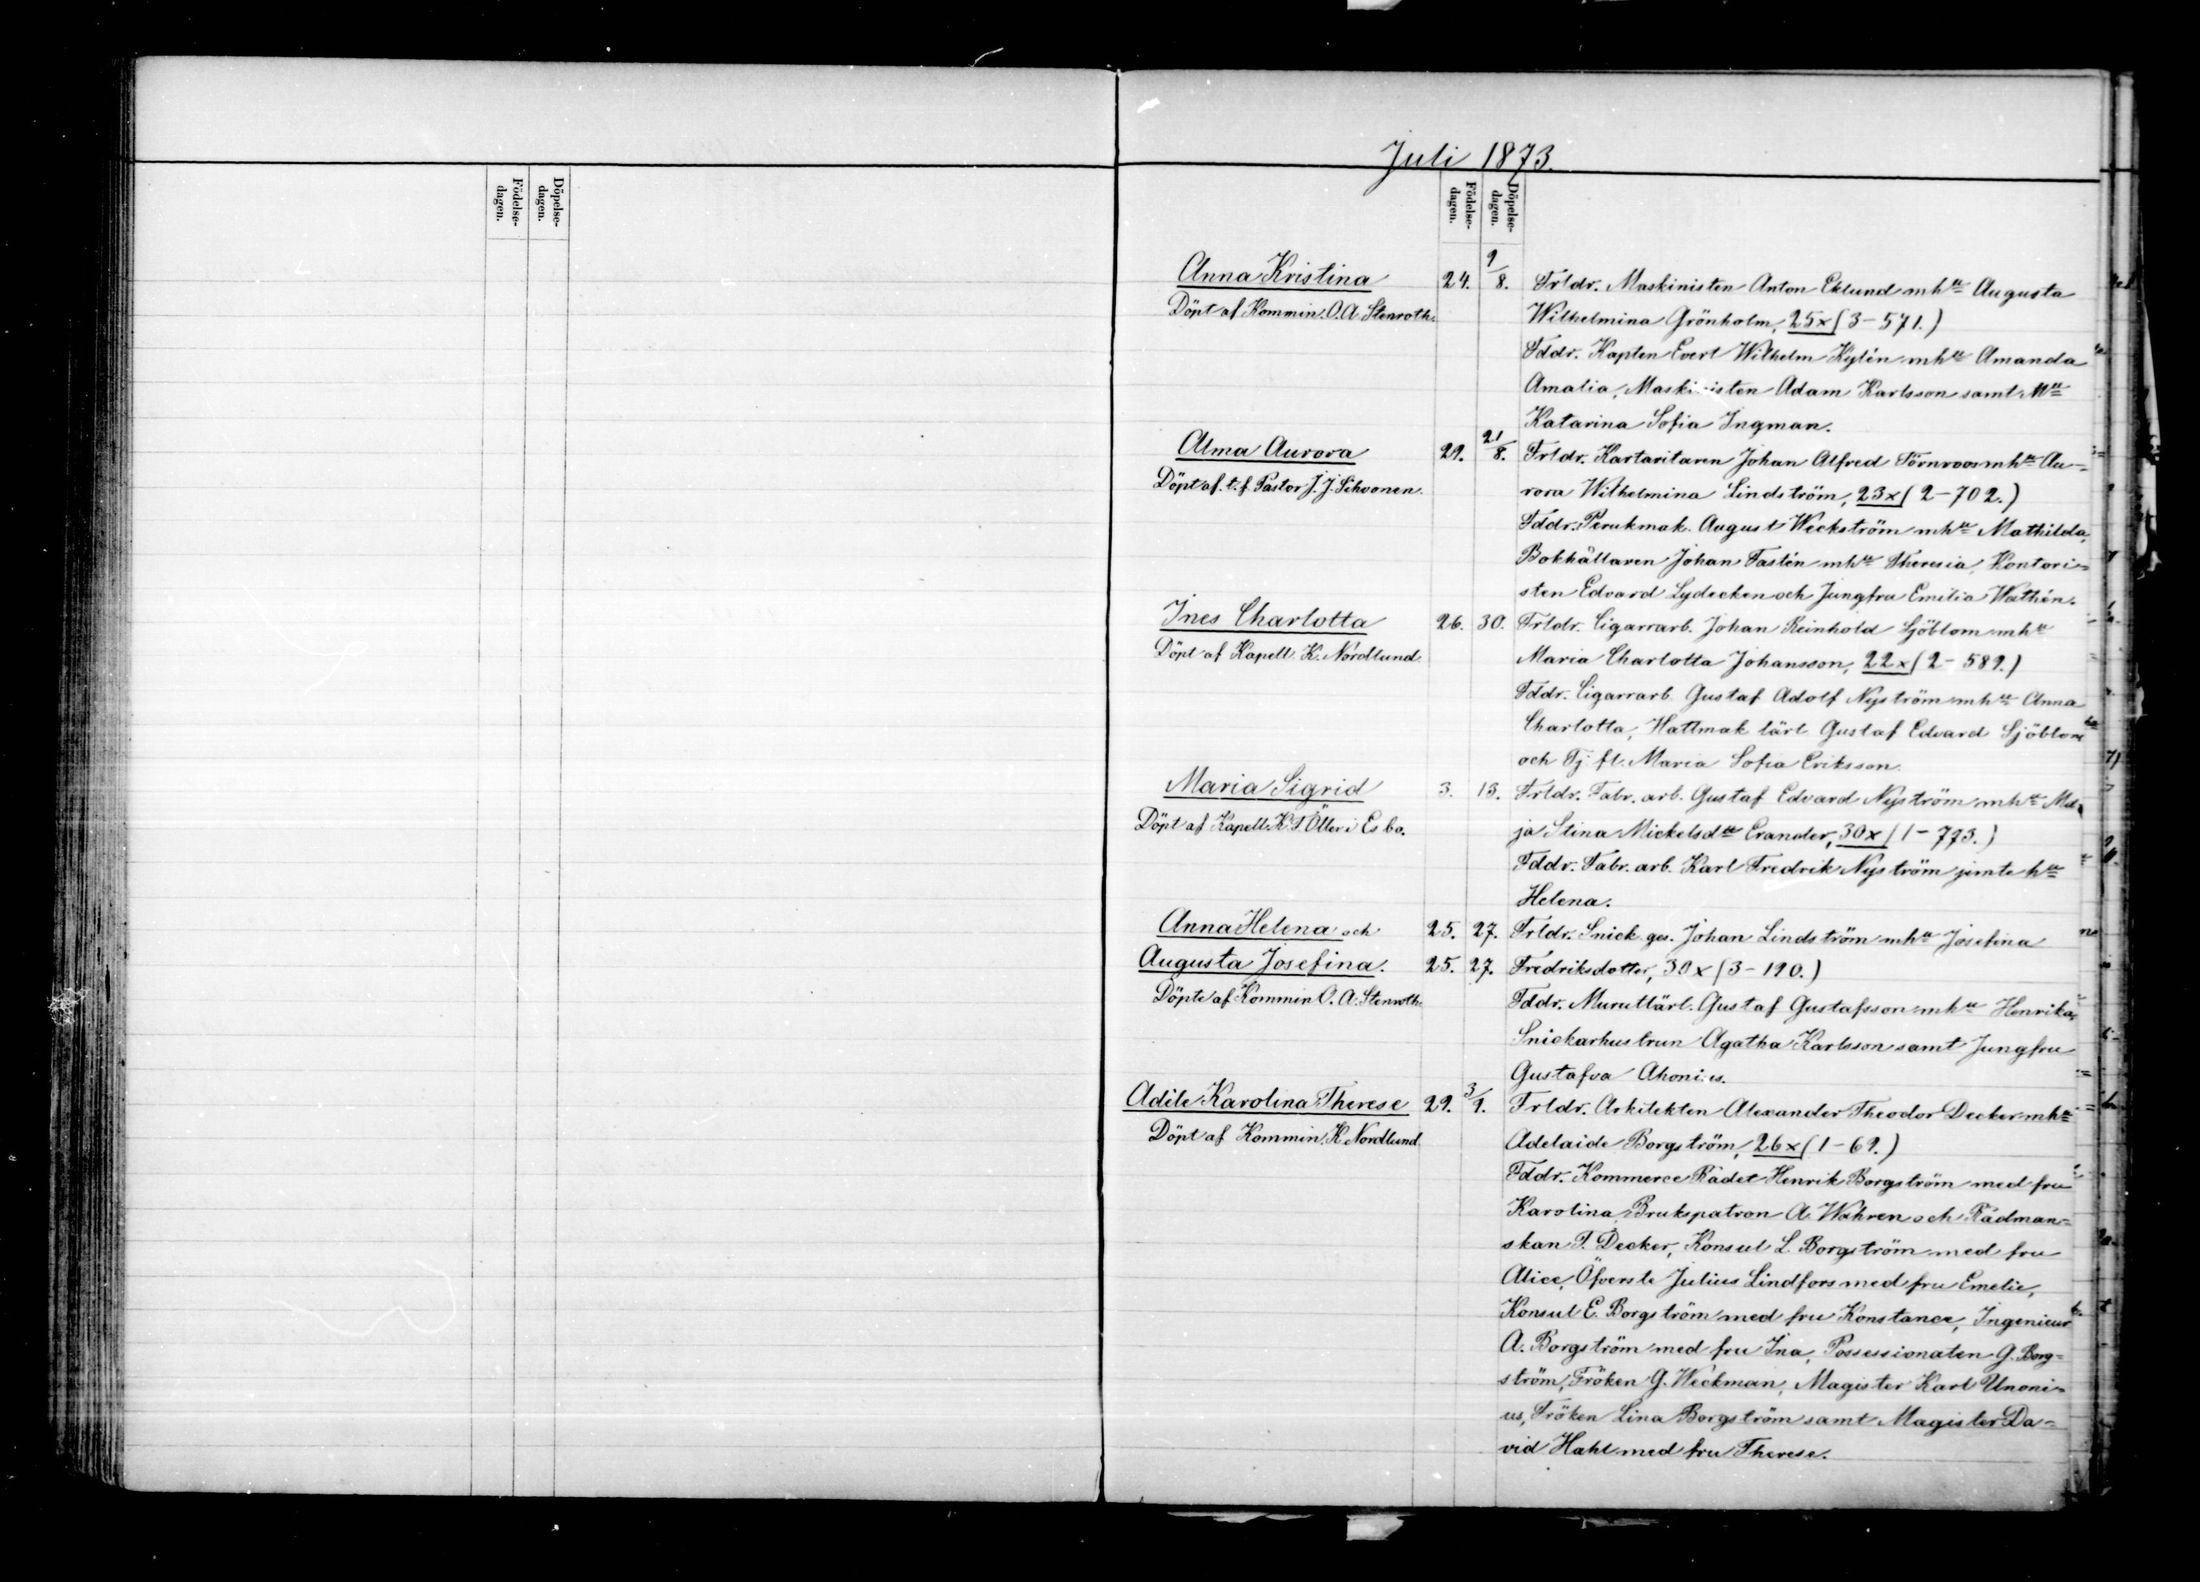 Juli 1873.
Födelse-
dagen.
Döpelse-
dagen.
Födelse-
dagen.
Döpelse-
dagen.
Anna Kristina 24. 9/8. Frldr. Maskinisten Anton Eklund mhu Augusta
Döpt af Kommin. O. A. Stenroth. Wilhelmina Grönholm, 25x (3-571.)
Fddr. Kapten Evert Wilhelm Kylén mhu Amanda
Amalia, Maskinisten Adam Karlsson samt Mll
Katarina Sofia Ingman.
Alma Aurora 29. 21/8. Frldr. Kartaritaren Johan Alfred Törnroos mhu Au-
Döpt af t. f. Pastor J. J. Sihvonen. rora Wilhelmina Lindström, 23x (2-702.)
Fddr. Perukmak. August Weckström mhu Mathilda,
Bokhållaren Johan Fastén mhu Theresia, Kontori-
sten Edvard Lydecken och Jungfru Emilia Wathén.
Ines Charlotta 26. 30. Frldr. Cigarrarb. Johan Reinhold Sjöblom mhu
Döpt af Kapell. K. Nordlund. Maria Charlotta Johansson, 22x (2-589.)
Fddr. Cigarrarb. Gustaf Adolf Nyström mhu Anna
Charlotta, Hattmak lärl Gustaf Edvard Sjöblom
och Tj. fl. Maria Sofia Eriksson.
Maria Sigrid 3. 13. Frldr. Fabr. arb. Gustaf Edvard Nyström mhu Ma
Döpt af Kapell. K. T. Öller i Esbo. ja Stina Mickelsdtr Erander, 30x (1-773.)
Fddr. Fabr. arb. Karl Fredrik Nyström jemte hu
Helena.
Anna Helena och 25. 27. Frldr. Snick. ges. Johan Lindström mhu Josefina
Augusta Josefina. 25. 27. Fredriksdotter, 30x (3-190.)
Döpte af Kommin O. A. Stenroth. Fddr. Murutlärl. Gustaf Gustafsson mhu Henrika,
Snickarhustrun Agatha Karlsson samt Jungfru
Gustafva Ahonius.
Adéle Karolina Therese 29. 3/9. Frldr. Arkitekten Alexander Theodor Decker mhu
Döpt af Kommin. K. Nordlund Adelaide Borgström, 26x (1-69.)
Fddr. Kommerce Rådet Henrik Borgström med fru
Karolina, Brukspatron A. Wahren och Rådman-
skan T. Decker, Konsul L. Borgström med fru
Alice, Öfverste Julius Lindfors med fru Emelie,
Konsul E. Borgström med fru Konstance, Ingenieur
A. Borgström med fru Ina, Possessionaten G. Borg-
ström, Fröken G. Weckman, Magister Karl Unoni-
us, Fröken Lina Borgström samt Magister Da-
vid Hahl med fru Therese.